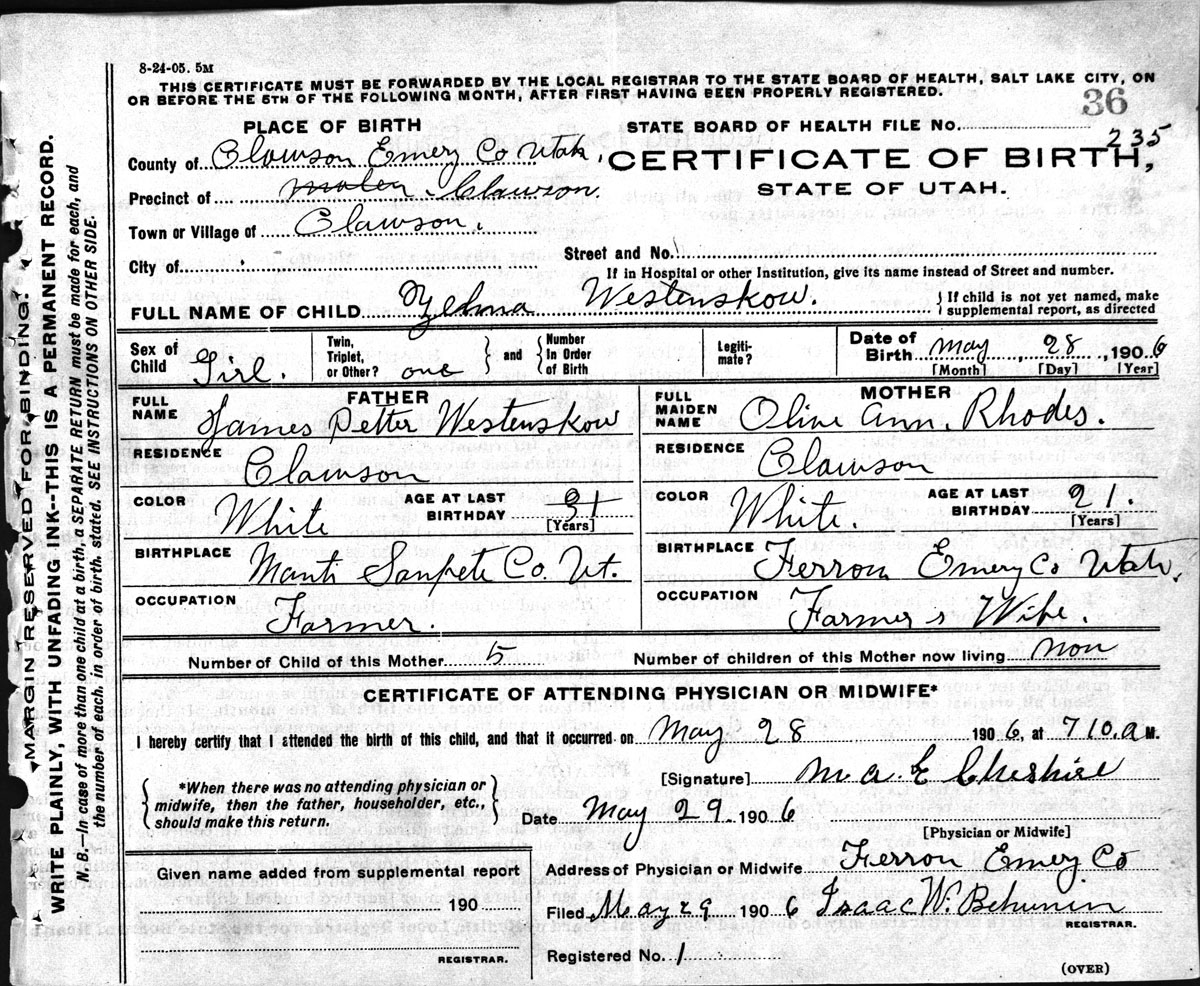 8-24-05. 5M
THIS CERTIFICATE MUST BE FORWARDED BY THE LOCAL REGISTRAR TO THE STATE BOARD OF HEALTH, SALT LAKE CITY, ON
OR BEFORE THE 5TH OF THE FOLLOWING MONTH, AFTER FIRST HAVING BEEN PROPERLY REGISTERED.
36
PLACE OF BIRTH
STATE BOARD OF HEALTH FILE No.
235
County of Clawson Emery Co Utah,
CERTIFICATE OF BIRTH,
STATE OF UTAH.
Precinct of Molen. Clawson.
Town or Village of Clawson.
City of
Street and No.
If in Hospital or other Institution, give its name instead of Street and number.
FULL NAME OF CHILD Zelma Westenskow.
If child is not yet named, make
supplemental report, as directed
Sex of Child Girl.
Twin, Triplet, or Other? one
and
Number In Order of Birth
Legiti-
mate?
Date of Birth May, 28, 1906
[Month] [Day] [Year]
FATHER
FULL NAME James Petter Westenskow
RESIDENCE Clawson
COLOR White
AGE AT LAST BIRTHDAY 31
[Years]
BIRTHPLACE Manti Sanpete Co. Ut.
OCCUPATION Farmer.
MOTHER
FULL MAIDEN NAME Olive Ann. Rhodes.
RESIDENCE Clawson
COLOR White.
AGE AT LAST BIRTHDAY 21.
[Years]
BIRTHPLACE Ferron Emery Co Utah.
OCCUPATION Farmer s Wife.
Number of Child of this Mother 5
Number of children of this Mother now living non
CERTIFICATE OF ATTENDING PHYSICIAN OR MIDWIFE*
I hereby certify that I attended the birth of this child, and that it occurred on May 28 1906, at 710. a M.
*When there was no attending physician or
midwife, then the father, householder, etc.,
should make this return.
[Signature] M. A. E Cheshire
Date May 29 1906
[Physician or Midwife]
Given name added from supplemental report
190
REGISTRAR.
Address of Physician or Midwife Ferron Emery Co
Filed May 29 1906 Isaac W. Behunin
REGISTRAR.
Registered No. 1
(OVER)
MARGIN RESERVED FOR BINDING.
WRITE PLAINLY, WITH UNFADING INK--THIS IS A PERMANENT RECORD.
N. B.--In case of more than one child at a birth, a SEPARATE RETURN must be made for each, and
the number of each, in order of birth, stated. SEE INSTRUCTIONS ON OTHER SIDE.